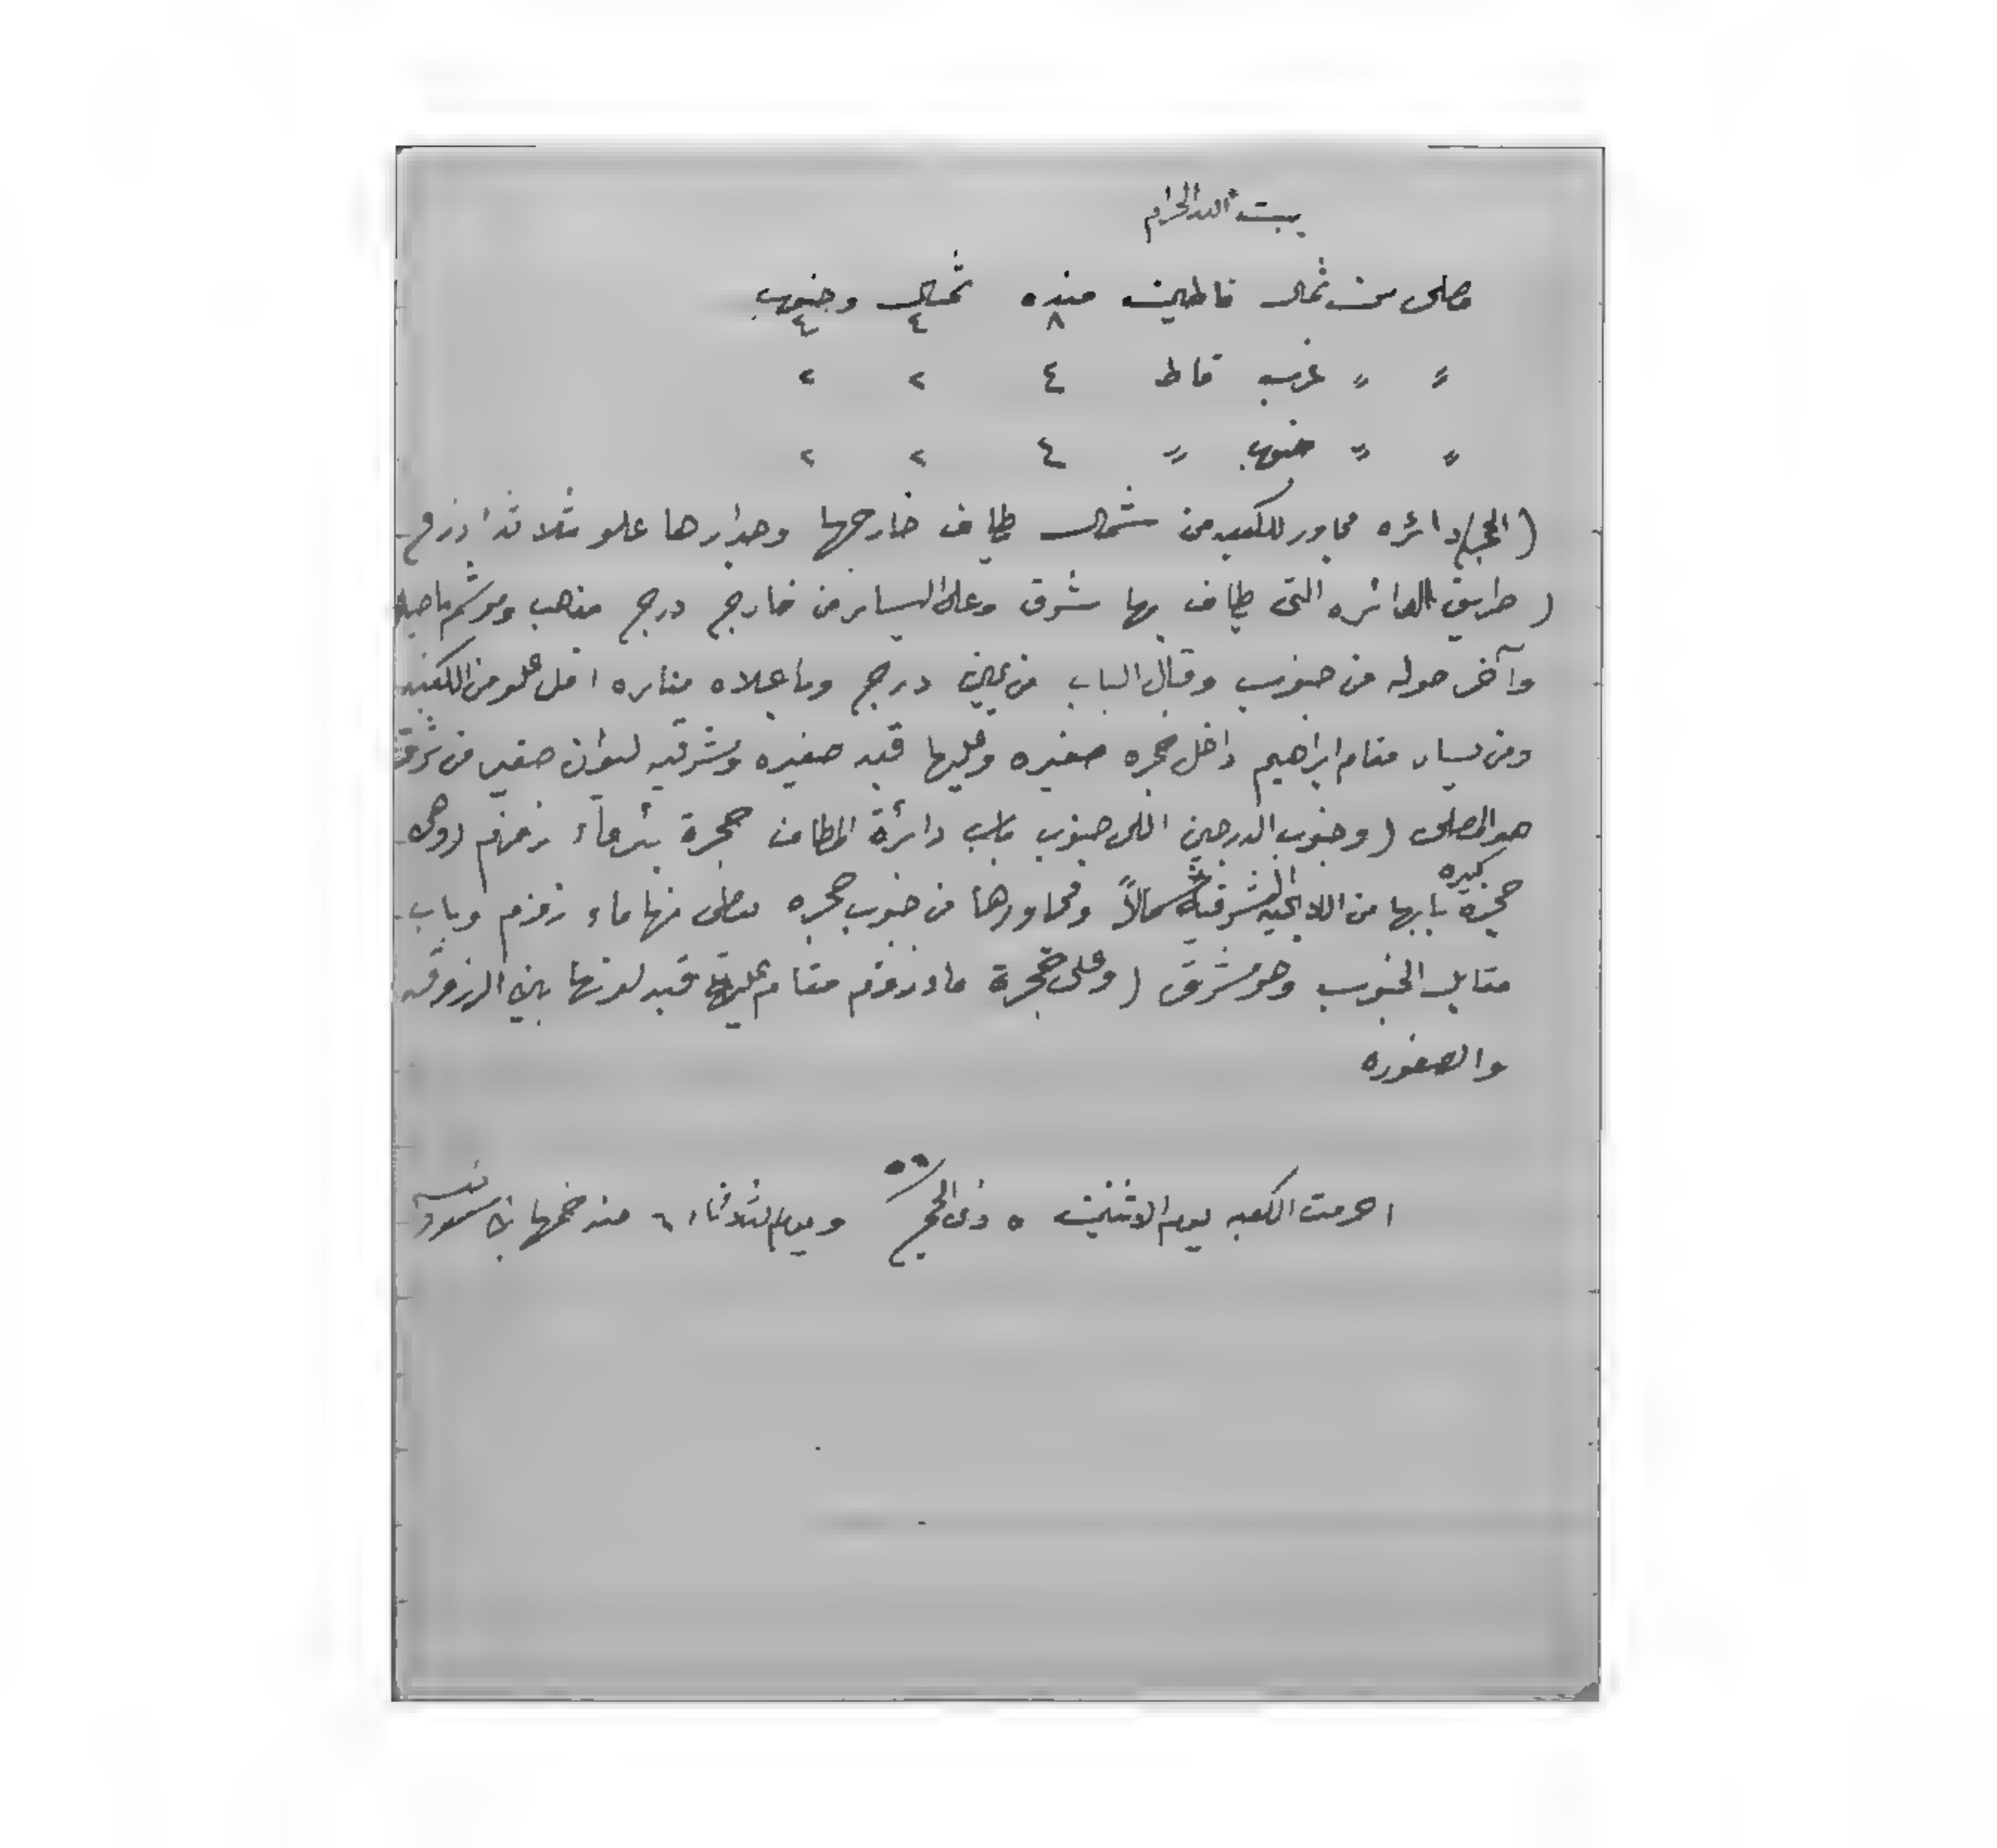 بيت الله الحرام
مصلى من شمال قاطين منده شمال وجنوب
٨ ٤ ٤
〃 〃 غرب قاط ٤ ٢ ٢
〃 〃 جنوب 〃 ٤ ٢ ٢
(الحجر) دائره مجاور للكعبه من شمال يطاف خارجها وجدارها علو ثلاثة اذرع
( طريق الدائره التي يطاف بها شرق وعلى اليسار من خارج درج مذهب
وآخر حوله من جنوب وقبال الباب من يمين درج وما علاه مناره اقل علو من الكعبه
ومن يسار مقام ابراهيم داخل حجره صغيره وعليها قبه صغيره وشرقيه ليوان صغير من شرق
هو المصلى ( وجنوب الدرجين اللى جنوب باب دائرة المطاف حجرة بئر ماء زمزم (وهى
حجرة كبيره بابها من الشرقية شمالاً ومجاورها من جنوب حجره يعطى منها ماء زمزم وباب
مقابل الجنوب وهو شرق ( وعلى حجرة ماء زمزم مقام عليها قبه لونها بين الزروقه
والصفوره
احرمت الكعبه يوم الاثنين ٥ ذى الحج ٥٦ ويوم الثلاثاء ٦ منه ضمها ابن سعود